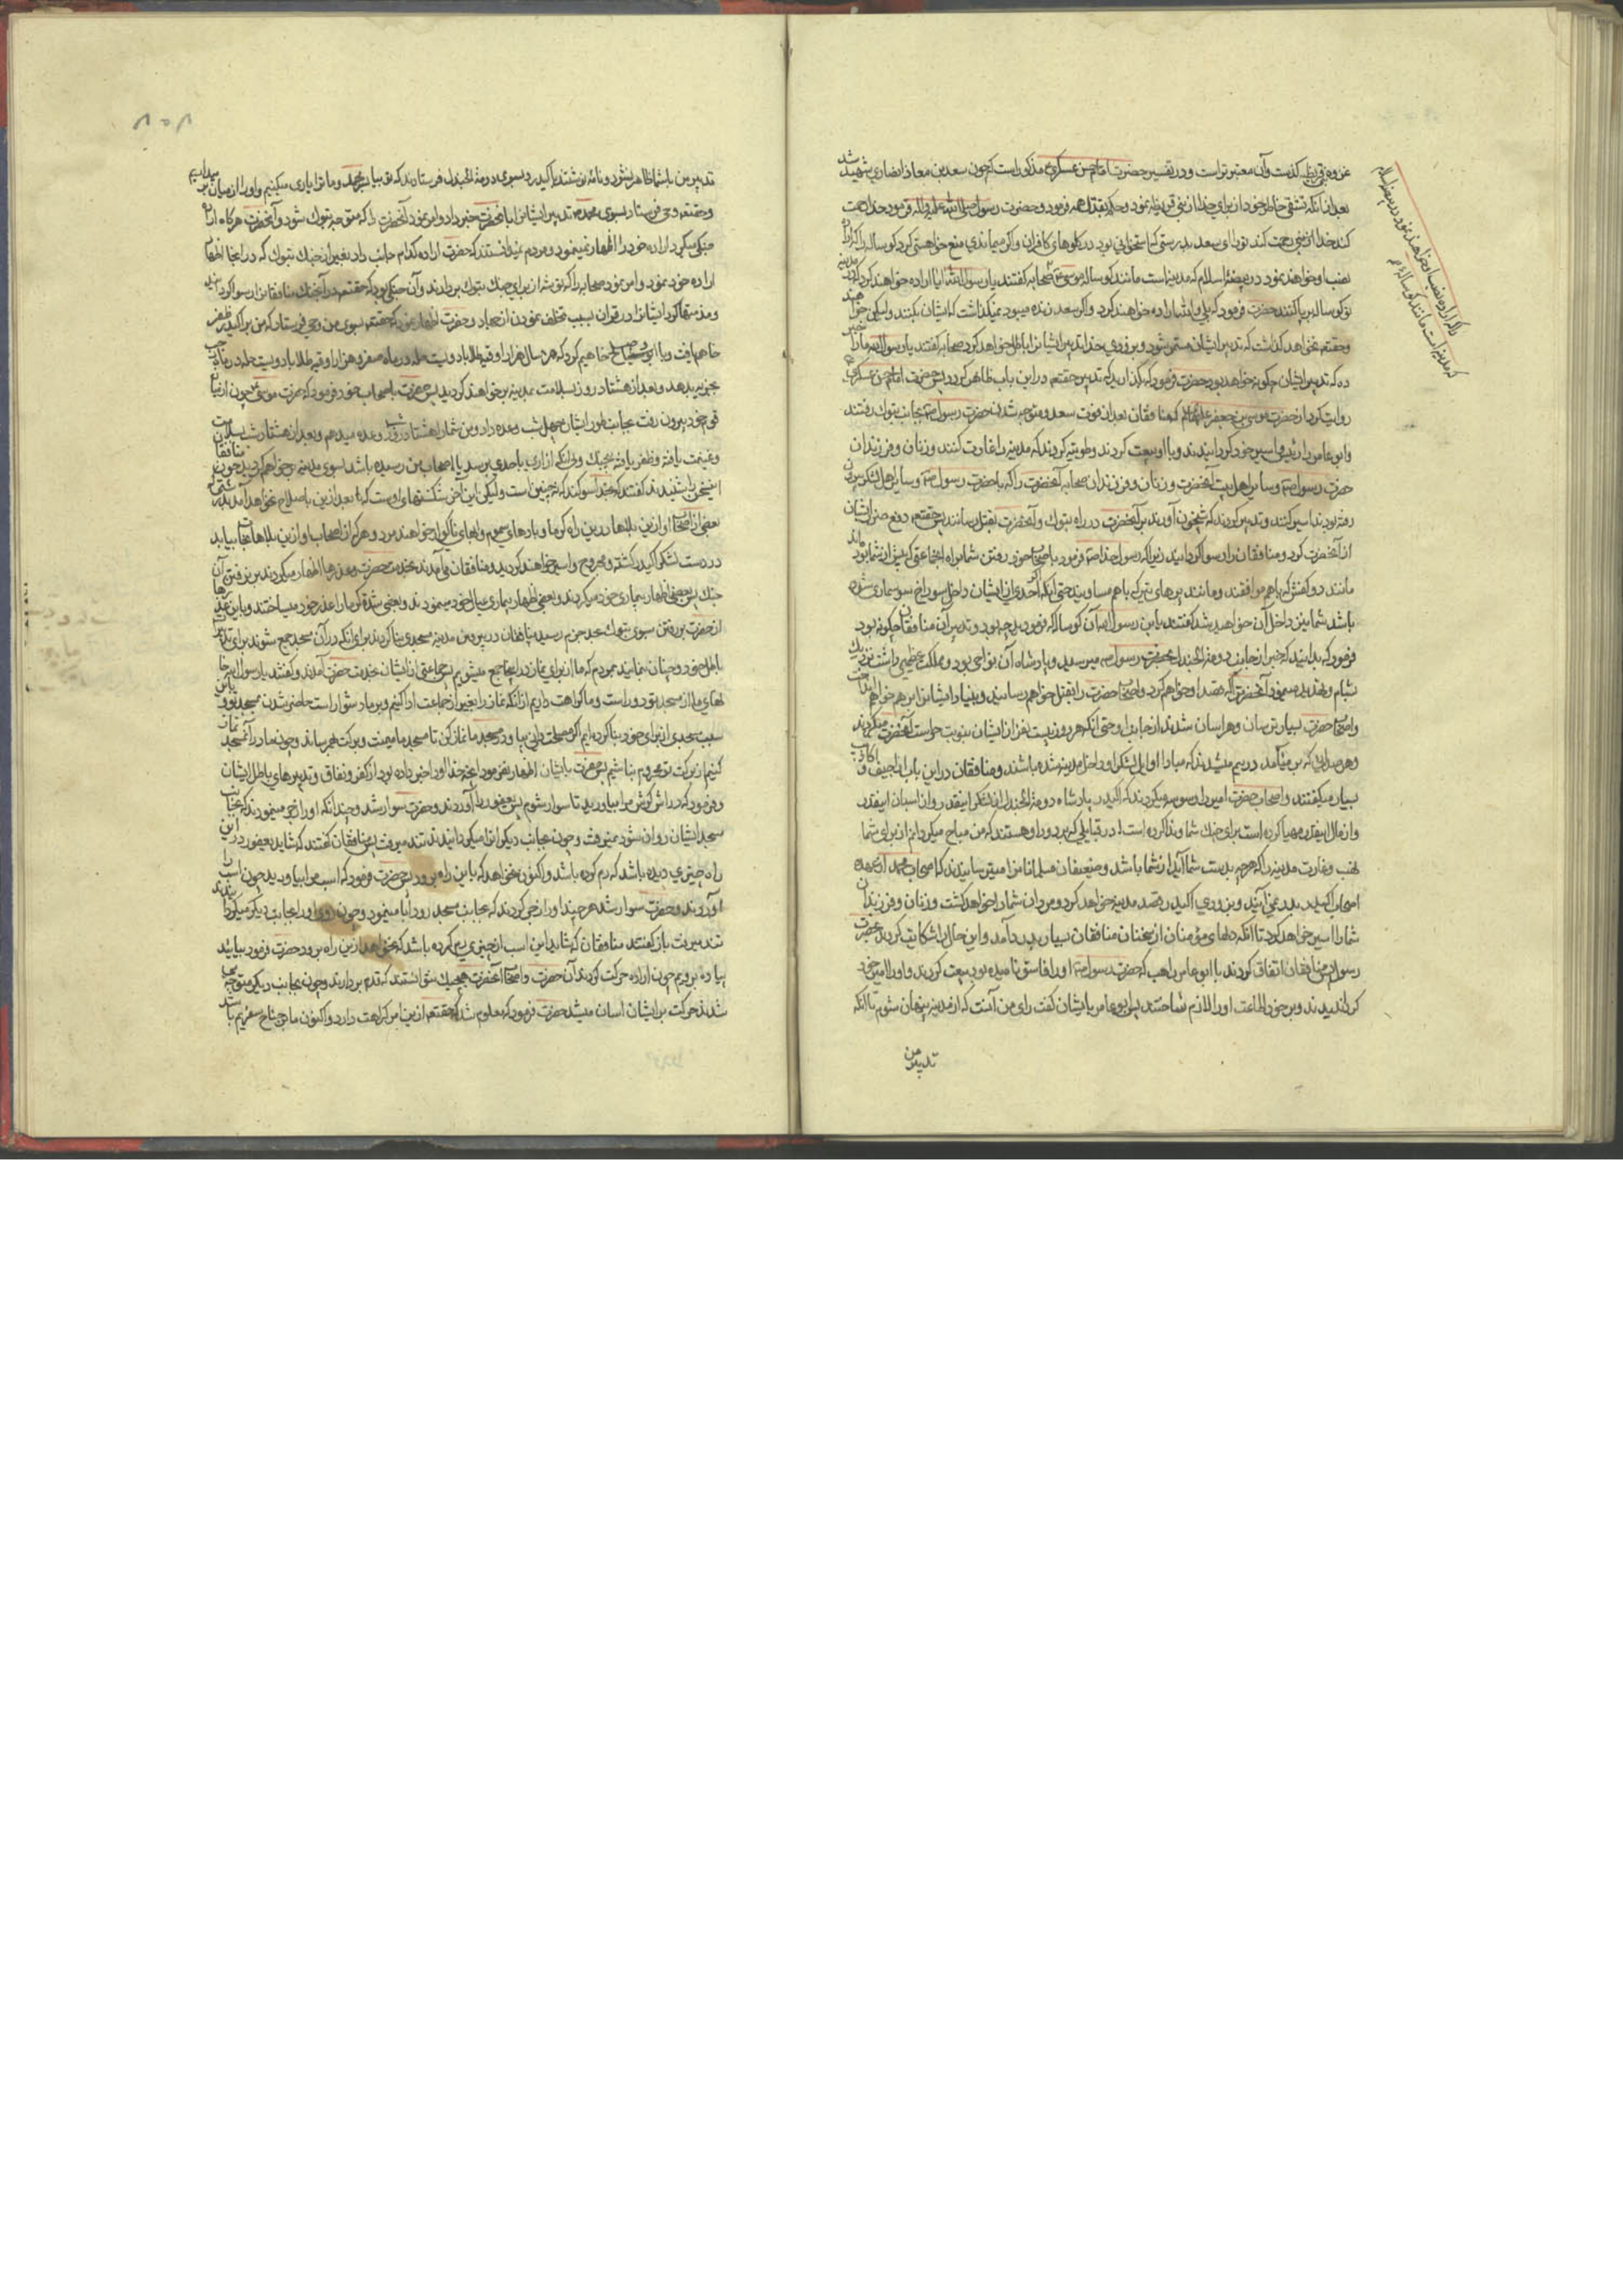 غزوه بنی قریظه گذشت وآن معتبرتر است و در تفسیر حضرت امام حسن عسکری مذکور است که چون سعد بن معاذ انصاری شهید شد
بعد از آنکه تشفی خاطر خود از برای خدا از بنی قریظه نمود و حکم بقتل همه فرمود و حضرت رسول صلی الله علیه واله فرمود خدا رحمت
کند خدا از تو رحمت کند تو را ای سعد بدرستی که استخوانی بود در گلوهای کافران واگر میماندی منع خواهستی کرد گوساله را که اراده
نصب او خواهند نمود در بیضهٔ اسلام که مدینه است مانند گوساله موسی صحابه گفتند یا رسول الله آیا اراده خواهند کرد که در مدینه
تو گوساله برپا کنند حضرت فرمود که بلی والله اراده خواهند کرد واگر سعد زنده میبود نمیگذاشت که ایشان بکنند ولیکن خواهند
وحقتعه نخواهد گذاشت که تدبیر ایشان مستمر شود وبزودی خدا تدبیر ایشانرا باطل خواهد کرد صحابه گفتند یا رسول الله ما را خبر
ده که تدبیر ایشان چگونه خواهد بود حضرت فرمود که بگذارید که تدبیر حقتعه در این باب ظاهر گردد پس حضرت امام حسن عسکری
روایت کرد از حضرت موسی بن جعفر علیه السلام که منافقان بعد از فوت سعد و متوجه شدن حضرت رسول صه بجانب تبوک رفتند
وابو عامر راهب را امیر خود گردانیدند وبا او بیعت کردند وطویه کردند که مدینه را غارت کنند وزنان وفرزندان
حضرت رسول صه وسایر اهل بیت آنحضرت وزنان وفرزندان صحابه آنحضرت را که با حضرت رسول صه وسایر اهل لشکر بیرون
رفته بودند اسیر کنند وتدبیر کردند که شبیخون آورند بر آنحضرت در راه تبوک وآنحضرت را بقتل رسانند پس حقتعه دفع ضرر ایشان
از آنحضرت کرد ومنافقان را رسوا گردانید زیرا که رسول خدا صه فرمود باصحاب خود رفتن شما براه جماعتی که پیش از شما بودند
مانند دو کفش که باهم موافقند ومانند پرهای تیر که باهم مساویند حتی آنکه اگر احدی از ایشان داخل سوراخ سوسماری شده
باشد شما نیز داخل آن خواهید شد گفتند یابن رسول الله آن گوساله که فرمودید چه بود وتدبیر آن منافقان چگونه بود
فرمود که بدانید که خبر از جانب دومة الجندل بحضرت رسول صه میرسید وپادشاه آن نواحی بود ومملکت عظیمی داشت نزدیک
بشام وتهدید مینمود آنحضرت را که قصد او خواهم کرد واصحاب حضرت را بقتل خواهم رسانید وبنیاد ایشانرا بر هم خواهم
واصحاب حضرت بسیار ترسان وهراسان شدند از جانب او حتی آنکه هر روز بیست نفر از ایشان بنوبت حراست آنحضرت میکردند
وهر صدائی که بر میآمد در بیم میشدند که مبادا اوایل لشکر او داخل مدینه شده باشند ومنافقان در این باب اراجیف و اکاذیب
بسیار میگفتند واصحاب حضرت امیر را وسوسه میکردند که اکیدر پادشاه دومة الجندل از لشکر اینقدر واز اسبان اینقدر
واز مال اینقدر مهیا کرده است برای جنک شما وندا کرده است در قبایلی که بر دور او هستند که من مباح میکردانم از برای شما
نهب وغارت مدینه را که هرچه بدست شما آید از شما باشد وضعیفان مسلمانانرا میترسانیدند که اصحاب محمد از عهده
اصحاب اکیدر بدر نمی آیند وبزودی اکیدر قصد مدینه خواهد کرد ومردان شما را خواهد کشت وزنان وفرزندان
شما را اسیر خواهد کرد تا آنکه دلهای مؤمنان از سخنان منافقان بسیار بدرد آمد واین حال را شکایت کردند بحضرت
رسول پس منافقان اتفاق کردند با ابو عامر راهب که حضرت رسول صه او را فاسق نامیده بود بیعت کردند واو را امیر خود
گردانیدند وبر خود اطاعت او را لازم ساختند پس ابو عامر بایشان گفت رای من آنست که از مدینه پنهان شوم تا آنکه
تدبیر من
واگر اراده نصب او خواهند نمود در بیضه اسلام
که مدینه است مانند گوساله موسی
۸۵۸
تدبیر من باشما ظاهر نشود ونامه نوشتند باکیدر وبسوی دومة الجندل فرستادند که تو بیا بر سر محمد وما ترا یاری میکنیم واو را از میان بر میداریم
وحقتعه وحی فرستاد بسوی محمد صه وتدبیر ایشانرا بآنحضرت خبر داد وامر نمود آنحضرت را که متوجه تبوک شود وآنحضرت هرگاه اراده
جنگی میکرد اراده خود را اظهار نمینمود ومردم نمیدانستند که حضرت اراده کدام جانب دارد بغیر از جنک تبوک که در اینجا اظهار
اراده خود نمود وامر نمود صحابه را که توشه از برای جنک تبوک بردارند وآن جنگی بود که حقتعه در آن جنک منافقانرا رسوا کرد
ومذمتها کرد ایشانرا در قرآن بسبب تخلف نمودن از جهاد وحضرت اظهار نمود که حقتعه بسوی من وحی فرستاد که من بر اکیدر ظفر
خواهم یافت وبا او صلح خواهم کرد که هر سال هزار اوقیه طلا با دویست حله در ماه صفر وهزار اوقیه طلا با دویست حله در ماه رجب
بجزیه بدهد وبعد از هشتاد روز بسلامت بمدینه بر خواهند گردید پس حضرت باصحاب خود فرمود که حضرت موسی چون از میان
قوم خود بیرون رفت بجانب طور ایشانرا چهل شب وعده داد ومن شما را هشتاد روز وعده میدهم وبعد از هشتاد شب بسلامت
وغنیمت یافته وظفر یافته بیجنک وبی آنکه آزاری باحدی برسد یا اصحاب من رسیده باشد بسوی مدینه بر خواهم گردید چون منافقان
این سخن را شنیدند گفتند که بخدا سوگند که نه چنین است ولیکن این آخر شکستهای اوست که بعد از این باصلاح نخواهد آمد
بعضی از اصحاب او از این بلاها در این راه گرما وبادهای سموم وآبهای ناگوار خواهند مرد وهر که از اصحاب او از این بلاها نجات بیابد
در دست لشکر اکیدر کشته ومجروح واسیر خواهند گردید ومنافقان می آمدند بخدمت حضرت وعذرها اظهار میکردند در نرفتن آن
جنک پس بعضی اظهار بیماری خود میکردند وبعضی اظهار بیماری عیال خود مینمودند وبعضی شدت گرما را عذر خود میساختند وباین عذرها
آنحضرت بر رفتن سوی تبوک عزم جزم رسید منافقان در بیرون مدینه مسجدی بنا کردند برای آنکه در آن مسجد جمع شوند برای تدبیر
باطل خود وچنان نمایند بمردم که ما از برای نماز در اینجا جمع میشویم پس جماعتی از ایشان بخدمت حضرت آمدند وگفتند یا رسول الله
خانهای ما از مسجد تو دور است وما کراهت داریم از آنکه نماز را بغیر از جماعت ادا کنیم وبر ما دشوار است حاضر شدن بمسجد تو
سبب مسجدی از برای خود بنا کرده ایم اگر مصلحت دانی بیا ودر مسجد ما نماز کن تا مسجد ما میمنت وبرکت بهم رساند وچون ما در آنمسجد نماز
کنیم از برکت تو محروم نباشیم پس حضرت بایشان اظهار نفرمود آنچه خدا او را خبر داده بود از کفر ونفاق وتدبیرهای باطل ایشان
وفرمود که دراز گوش مرا بیاورید تا سوار شوم پس یعفور را آوردند وحضرت سوار شد وچندانکه او را زجر مینمودند که بجانب
مسجد ایشان روان شود نمیرفت وچون بجانب دیگر آنرا میگردانیدند تند میرفت پس منافقان گفتند که شاید یعفور در این
راه چیزی دیده باشد که رم کرده باشد واکنون نمیخواهد که باین راه برود پس حضرت فرمود که اسب مرا بیاورید چون اسب را
آوردند وحضرت سوار شد هر چند او را زجر کردند که بجانب مسجد رود ابا مینمود وچون روی او را بجانب دیگر میگردانیدند
تند میرفت باز گفتند منافقان که شاید این اسب از چیزی رم کرده باشد که نمیخواهد از این راه برود حضرت فرمود بیائید
پیاده برویم چون اراده حرکت کردند آن حضرت واصحاب آنحضرت هیچیک نتوانستند که قدم بردارند وچون بجانب دیگر متوجه می
شدند حرکت بر ایشان آسان میشد حضرت فرمود که معلوم شد که حقتعه از این امر کراهت دارد واکنون ما بر جناح سفریم باشد